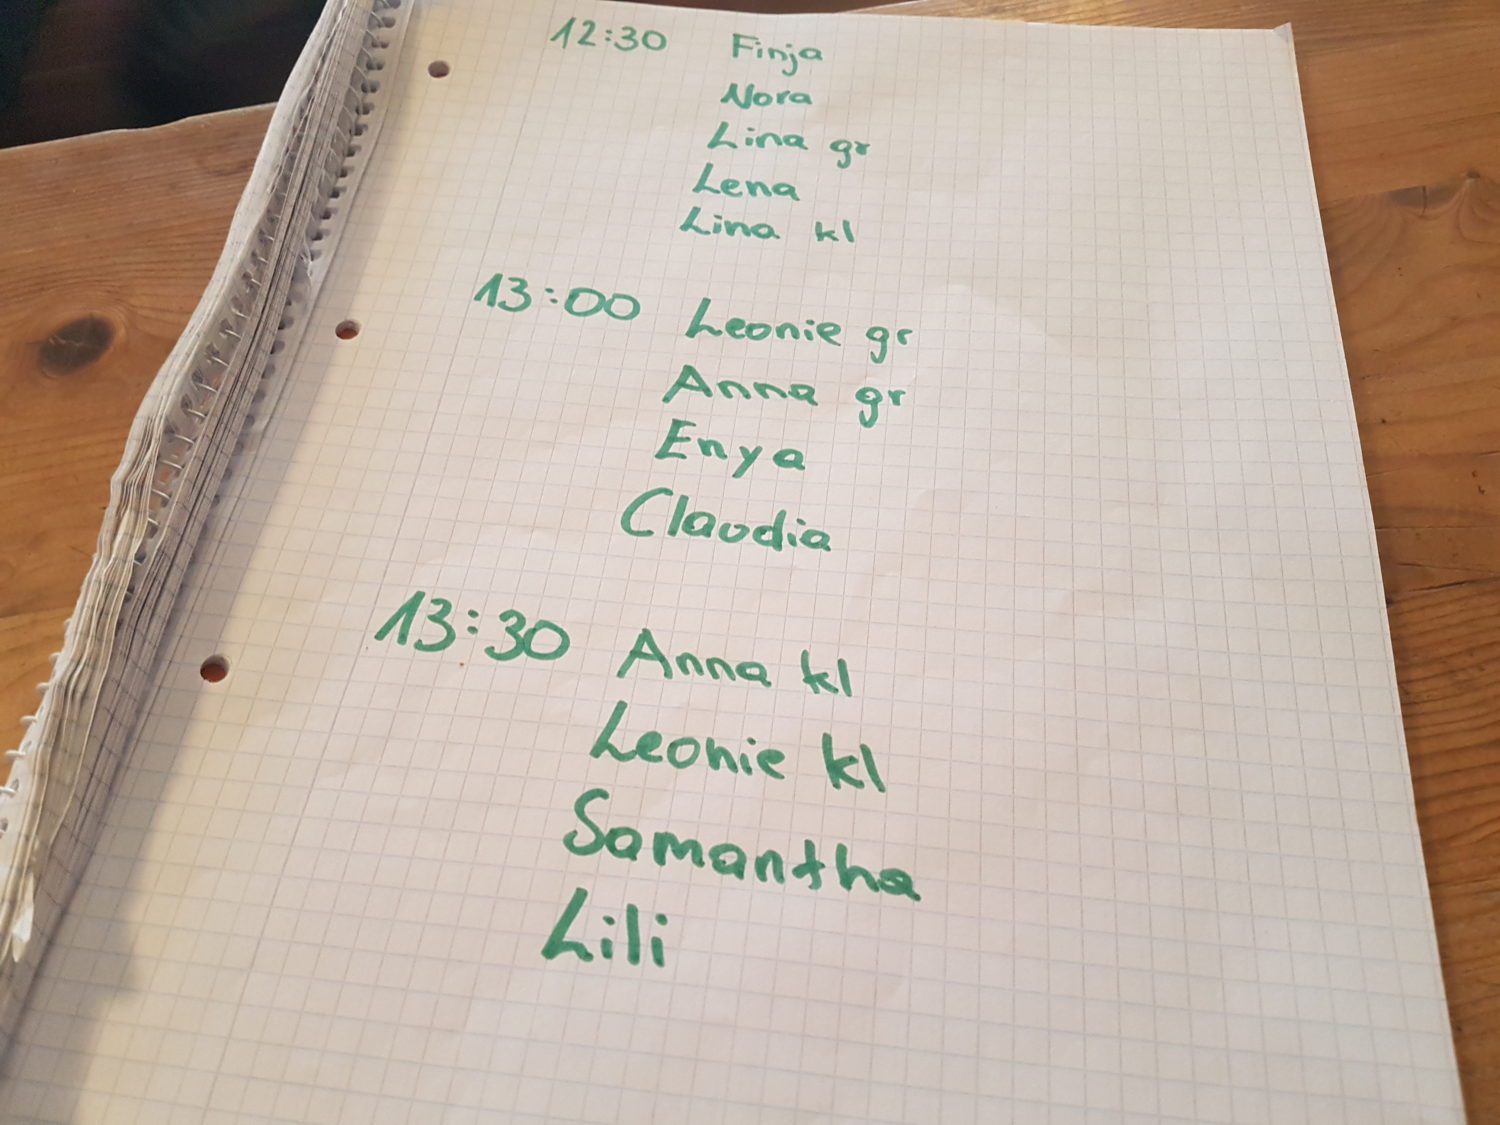 12:30 Finja
Nora
Lina gr
Lena
Lina kl
13:00 Leonie gr
Anna gr
Enya
Claudia
13:30 Anna kl
Leonie kl
Samantha
Lili